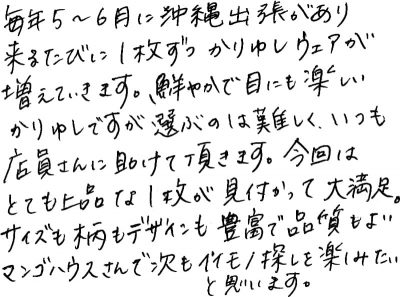 毎年5～6月に沖縄出張があり
来るたびに1枚ずつかりゆしウェアが
増えていきます。鮮やかで目にも楽しい
かりゆしですが選ぶのは難しく、いつも
店員さんに助けて頂きます。今回は
とても上品な1枚が見付かって大満足。
サイズも柄もデザインも豊富で品質もよい
マンゴハウスさんで次もイイモノ探しを楽しみたい
と思います。